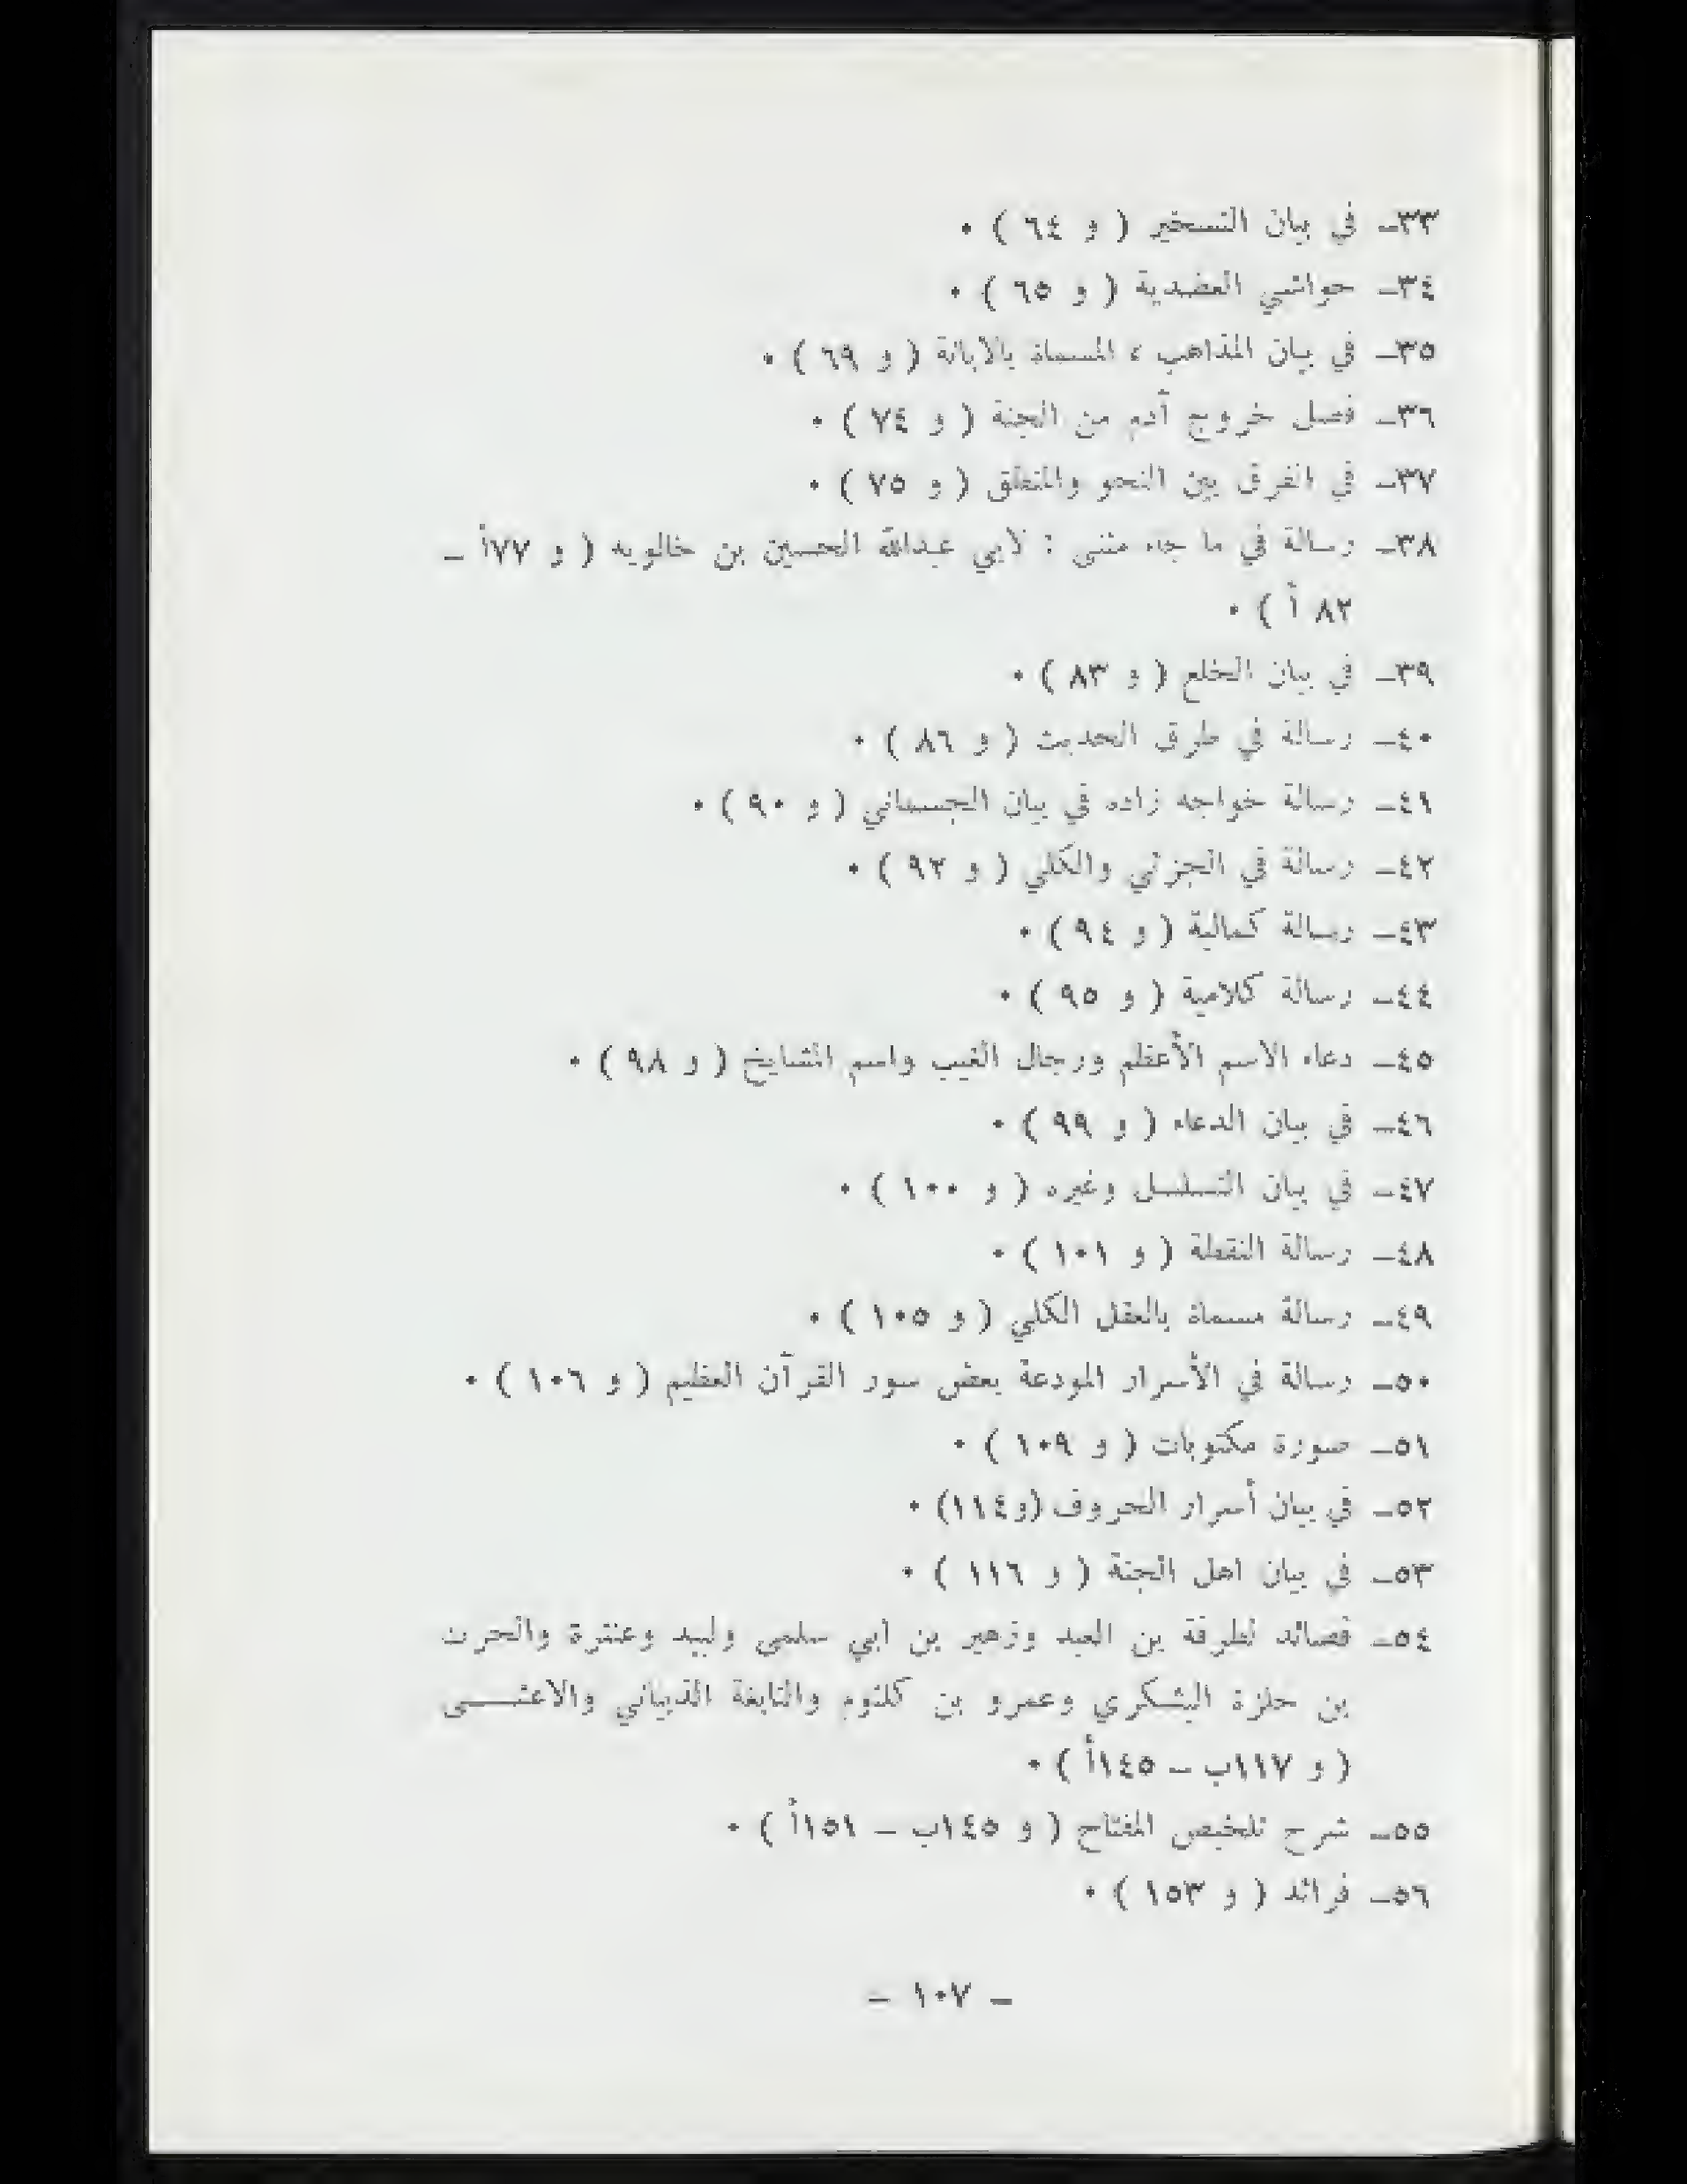 ٣٣ــ في بيان التسخير ( و ٦٤ ) ٠
٣٤ــ حواشي العضدية ( و ٦٥ ) ٠
٣٥ــ في بيان المذاهب ، المسماة بالابانة ( و ٦٩ ) ٠
٣٦ــ فصل خروج آدم من الجنة ( و ٧٤ ) ٠
٣٧ــ في الفرق بين النحو والمنطق ( و ٧٥ ) ٠
٣٨ــ رسالة في ما جاء مثنى : لابي عبدالله الحسين بن خالويه ( و ٧٧أ ــ
٨٢ أ ) ٠
٣٩ــ في بيان الخلع ( و ٨٣ ) ٠
٤٠ــ رسالة في طرق الحديث ( و ٨٦ ) ٠
٤١ــ رسالة خواجه زاده في بيان الجسماني ( و ٩٠ ) ٠
٤٢ــ رسالة في الجزئي والكلي ( و ٩٢ ) ٠
٤٣ــ رسالة كمالية ( و ٩٤ ) ٠
٤٤ــ رسالة كلامية ( و ٩٥ ) ٠
٤٥ــ دعاء الاسم الأعظم ورجال الغيب واسم المشايخ ( و ٩٨ ) ٠
٤٦ــ في بيان الدعاء ( و ٩٩ ) ٠
٤٧ــ في بيان التسلسل وغيره ( و ١٠٠ ) ٠
٤٨ــ رسالة النقطة ( و ١٠١ ) ٠
٤٩ــ رسالة مسماة بالعقل الكلي ( و ١٠٥ ) ٠
٥٠ــ رسالة في الأسرار المودعة بعض سور القرآن العظيم ( و ١٠٦ ) ٠
٥١ــ صورة مكتوبات ( و ١٠٩ ) ٠
٥٢ــ في بيان أسرار الحروف (و١١٤) ٠
٥٣ــ في بيان اهل الجنة ( و ١١٦ ) ٠
٥٤ــ قصائد لطرفة بن العبد وزهير بن ابي سلمى ولبيد وعنترة والحرث
بن حلزة اليشكري وعمرو بن كلثوم والنابغة الذبياني والاعشــــى
( و ١١٧ب ــ ١٤٥أ ) ٠
٥٥ــ شرح تلخيص المفتاح ( و ١٤٥ب ــ ١٥١أ ) ٠
٥٦ــ فرائد ( و ١٥٣ ) ٠
ــ ١٠٧ ــ